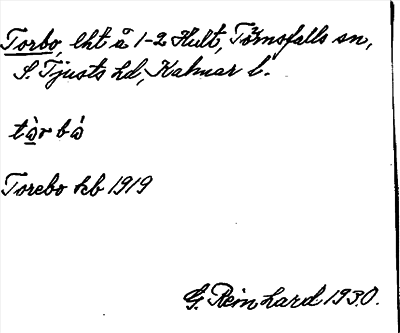 Torbo, lht å 1-2 Hult, Törnsfalls sn,
S. Tjusts hd, Kalmar l.
tàr bå
Torebo kb 1919
G. Reinhard 1930.